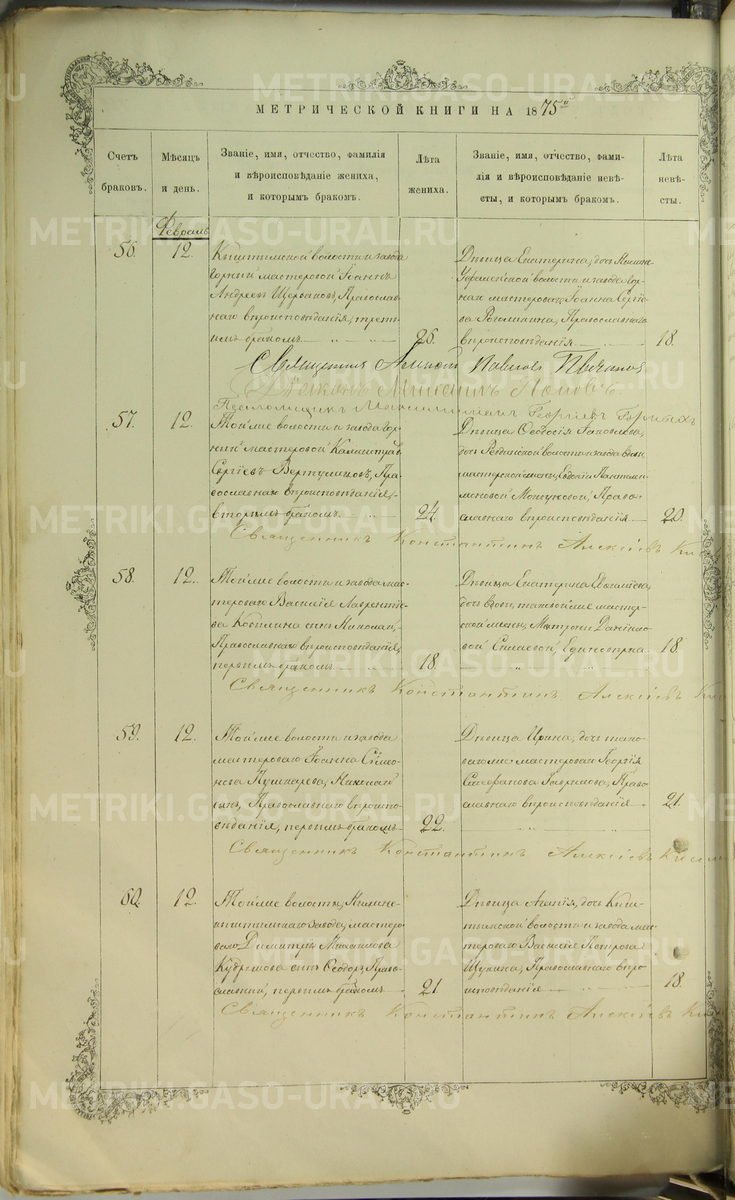 МЕТРИЧЕСКОЙ КНИГИ НА 1875й
Счетъ браковъ.
Мѣсяцъ и день.
Званіе, имя, отчество, фамилія
и вѣроисповѣданіе жениха,
и которымъ бракомъ.
Лѣта
жениха.
Званіе, имя, отчество, фами-
лія и вѣроисповѣданіе невѣ-
сты, и которымъ бракомъ.
Лѣта
невѣ-
сты.
Февраль
56.
12.
Кыштымской волости и завода
горный мастеровой Іоаннъ
Андреевъ Щербаковъ, Православ-
наго вѣроисповѣданія, треть-
имъ бракомъ
25.
Дѣвица Екатерина, дочь Нижне
Уфалейской волости и завода гор-
наго мастероваго Іоанна Сергѣе-
ва Православнаго
вѣроисповѣданія
18.
Священникъ Павловъ
Діаконъ Михаилъ Поповъ
Псаломщикъ Георгіевъ
57.
12.
Той же волости и завода гор-
ный мастеровой Каллистратъ
Сергѣевъ Пра-
вославнаго вѣроисповѣданія,
вторымъ бракомъ
24.
Дѣвица Ѳеодосія Яковлева,
дочь Ревдинской волости и завода
мастерской жены, Евдокіи Пантелеи-
моновой Право-
славнаго вѣроисповѣданія
20.
Священникъ Константинъ Алексѣевъ
58.
12.
Той же волости и завода мас-
тероваго Василія Лаврентіе-
ва сынъ Николай,
Православнаго вѣроисповѣданія,
первымъ бракомъ
18.
Дѣвица Екатерина
дочь вдовы, таковой же мастер-
ской жены, Матроны Данило-
вой Единовѣрка
18.
Священникъ Константинъ Алексѣевъ
59.
12.
Той же волости и завода
мастероваго Іоанна Симо-
нова Пушкарева, Николай
сынъ, Православнаго вѣроиспо-
вѣданія, первымъ бракомъ
22.
Дѣвица Ирина, дочь тако-
ваго же мастероваго Георгія
Гаврилова, Право-
славнаго вѣроисповѣданія
21.
Священникъ Константинъ Алексѣевъ
60.
12.
Той же волости, Нижне-
кыштымскаго Завода, мастеро-
ваго Димитрія Михаилова
Кудряшова сынъ Ѳеодоръ, Право-
славный, первымъ бракомъ
21
Дѣвица Агнія, дочь Кыш-
тымской волости и завода мас-
тероваго Василія Петрова
Щукина, Православнаго вѣро-
исповѣданія
18.
Священникъ Константинъ Алексѣевъ
METRIKI.GASO-URAL.RU